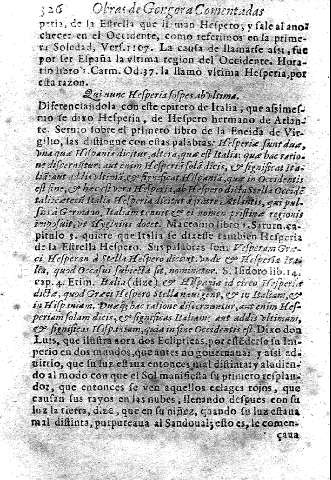 326 Obras de Gongora Comentadas
peria, de la Estrella que llaman Hespero, y sale al ano-
checer en el Occidente, como referimos en la prime-
ra Soledad, Vers. 1107. La causa de llamarse assi, fue
por ser España la vltima region del Occidente. Hora-
rio libro 1. Carm. Od. 37. la llamo vltima Hesperia, por
esta razon.
Qui nunc Hesperia sospes ab vltima.
Diferenciandola con este epiteto de Italia, que assimes-
mo se dixo Hesperia, de Hespero hermano de Atlan-
te. Seruio sobre el primero libro de la Eneida de Vir-
gilio, las distingue con estas palabras: Hesperiæ sunt duæ,
vna quæ Hispania dicitur, altera, quæ est Italia: quæ hac ratione
discernuntur, aut enim Hesperia solã dicis, & significas Ita-
liã: aut addis vltimã, & significas Hispaniã, quæ in Occidentis
est fine, & hæc est vera Hesperia, ab Hespero dicta
Italia Hesperia dicitur à fratre Atlantis, qui pul-
sus à Germano, Italiam tenuit & ei nomen pristinæ regionis
imposuit, vt Higinius docet. Macrobio libro 1. Saturn. ca-
pitulo 3. quiere que Italia se dixesse tambien Hesperia
de la Estrella Hespero. Sus palabras son: Vesperam Græ-
ci Hesperan à Stella Hespero dicunt: vnde & Hesperia Ita-
lia, quod Occasui subiecta sit, nominatur. S. Isidoro lib. 14.
cap. 4. Etim. Italia (dize) & Hesperia ad circo Hesperia
dicta, quod Græci Hespero Stella nauigent, & in Italiam, &
in Hispaniam. Duæ hac ratione discernuntur, aut enim Hes-
periam solam dicis, & significas Italiam: aut addis vltimam,
& significas Hispaniam, quia in fine Occidentis est. Dixo don
Luis, que ilustra aora dos Eclipticas, por estẽderse su Im-
perio en dos mundos, que antes no gouernaua: y assi ad-
uirtio, que su luz estaua entonces mal distinta, y aludien-
do al modo con que el Sol manifiesta su primero resplan-
dor, que entonces se ven aquellos celages rojos, que
causan sus rayos en las nubes, llenando despues con su
luz la tierra, dize, que en su niñez, quando su luz estaua
mal distinta, purpureaua al Sandoual; esto es, le comen-
çaua